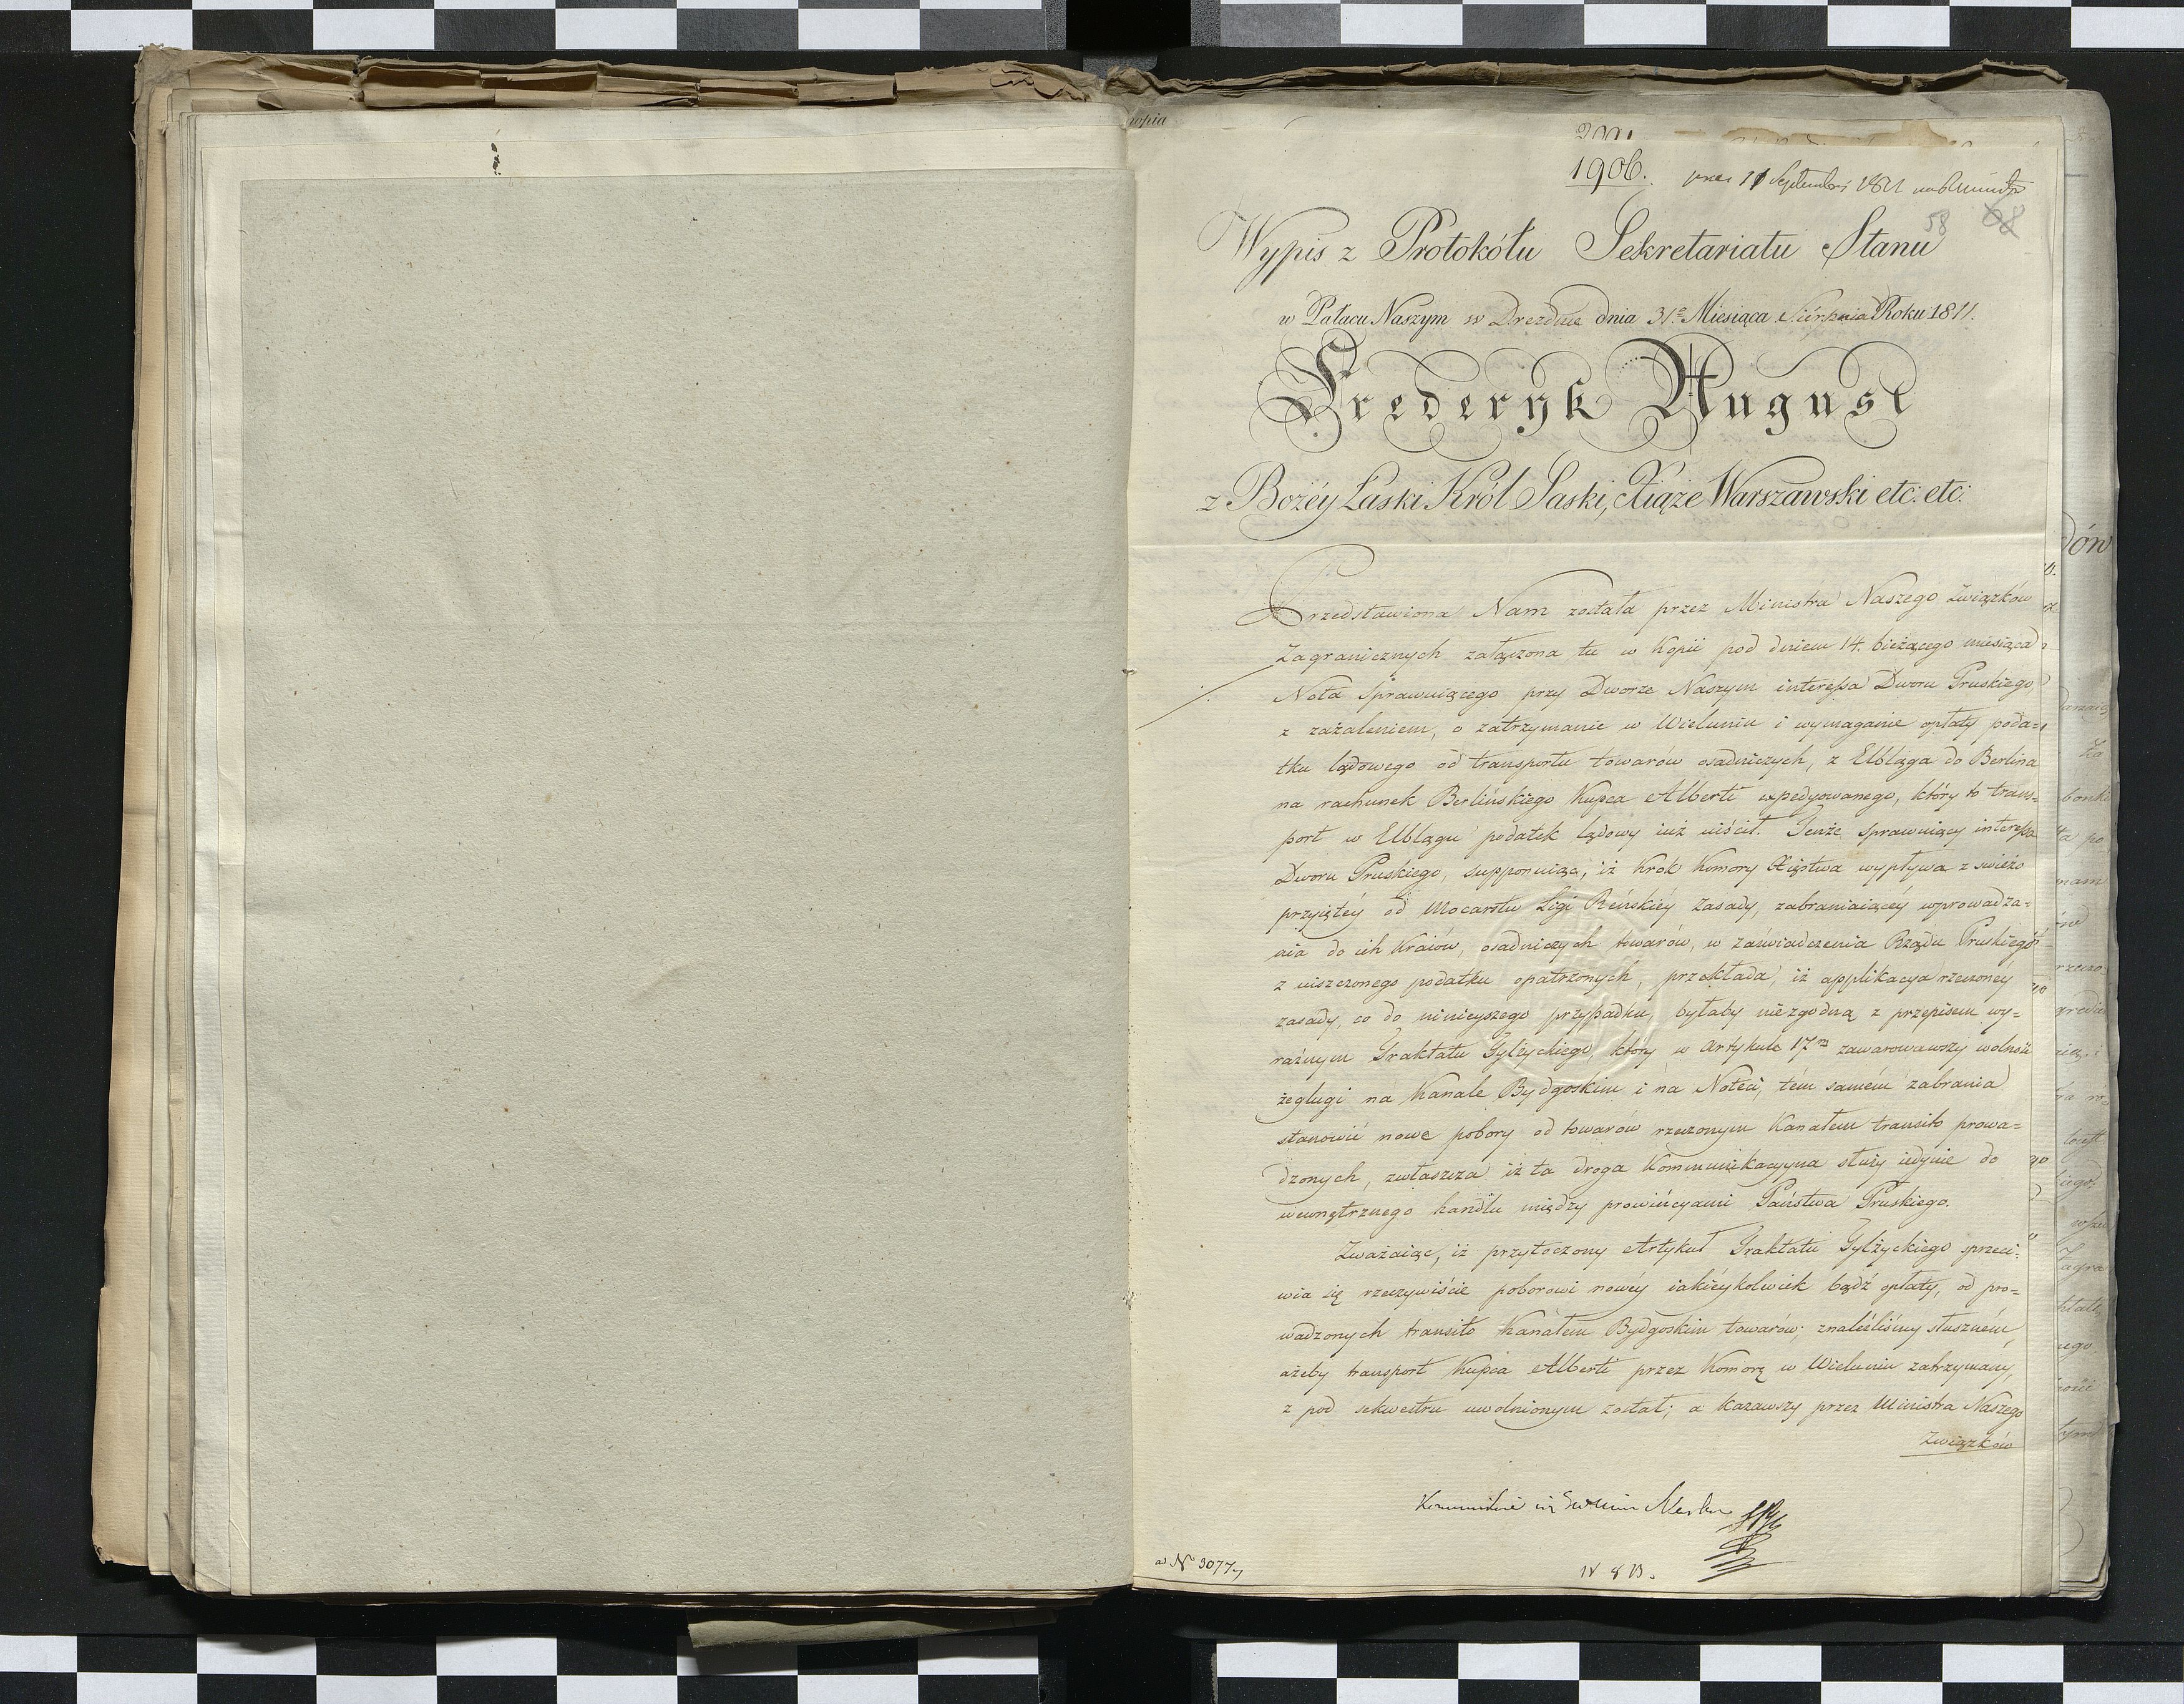 1906.
58
68
Wypis z Protokółu Sekretariatu Stanu
w Pałacu Naszym w Dreźdnie dnia 31° Miesiąca Sierpnia Roku 1811.
Frederyk August
z Bożéy Łaski Król Saski, Xiąże Warszawski etc: etc:
Przedstawiona Nam została przez Ministra Naszego Związków
Zagranicznych załączona tu w Kopii pod dniem 14. bieżącego miesiąca
Nota Sprawuiącego przy Dworze Naszym interessa Dworu Pruskiego
z zażaleniem, o zatrzymanie w Wieluniu i wymaganie opłaty poda=
tku lądowego od transportu towarów osadniczych, z Elbląga do Berlina
na rachunek Berlińskiego Kupca Alberti expedyowanego, który to trans=
port w Elblągu podatek lądowy iuż uiścił. Tenże Sprawuiący interessa
Dworu Pruskiego, supponuiąc, iż krok Komory Xięstwa wypływa z swieżo
przyiętéy od Mocarstw Ligi Reńskiéy zasady, zabraniaiącéy wprowadza=
nia do ich Kraiów, osadniczych towarów, w zaświadczenia Rządu Pruskiego
z uiszczonego podatku opatrzonych, przekłada, iż applikacya rzeczoney
zasady, co do ninieyszego przypadku, byłaby niezgodną z przepisem wy=
raźnym Traktatu Tylżyckiego, który w Artykule 17m zawarowawszy wolność
żeglugi na Kanale Bydgoskim i na Noteci, tém samém zabrania
stanowić nowe pobory od towarów rzeczonym Kanałem transito prowa=
dzonych, zwłaszcza iż ta droga Kommunikacyyna służy iedynie do
wewnętrznego handlu między prowincyami Państwa Pruskiego.
Zważaiąc, iż przytoczony Artykuł Traktatu Tylżyckiego sprzeci=
wia się rzeczywiście poborowi nowéy iakiéykolwiek bądź opłaty, od pro=
wadzonych transito Kanałem Bydgoskim towarów; znaleźliśmy słuszném,
ażeby transport Kupca Alberti przez Komorę w Wieluniu zatrzymany,
z pod sekwestru uwolnionym został; a kazawszy przez Ministra Naszego
Związków
N° 3077